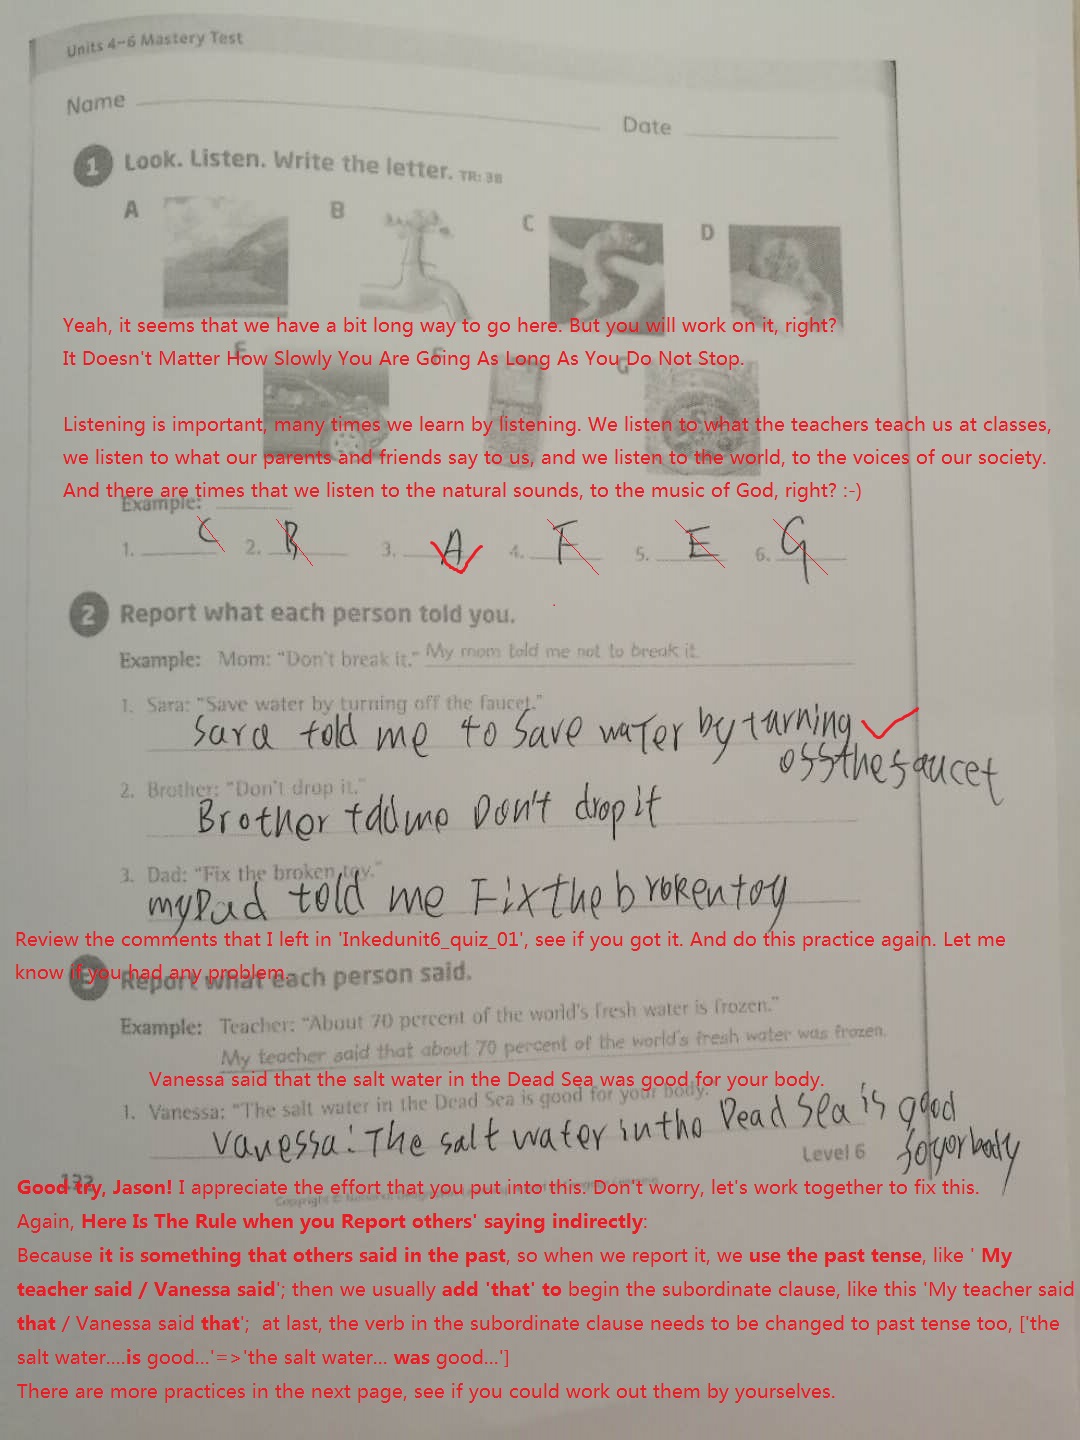 Units 4–6 Mastery Test
Name
Date
1 Look. Listen. Write the letter. TR: 38
A B C D
Yeah, it seems that we have a bit long way to go here. But you will work on it, right?
It Doesn't Matter How Slowly You Are Going As Long As You Do Not Stop.
E F G
Listening is important, many times we learn by listening. We listen to what the teachers teach us at classes,
we listen to what our parents and friends say to us, and we listen to the world, to the voices of our society.
And there are times that we listen to the natural sounds, to the music of God, right? :-)
Example:
1. C 2. B 3. A 4. F 5. E 6. G
2 Report what each person told you.
Example: Mom: "Don't break it." My mom told me not to break it.
1. Sara: "Save water by turning off the faucet."
Sara told me to save water by turning
off the faucet
2. Brother: "Don't drop it."
Brother told me Don't drop it
3. Dad: "Fix the broken toy."
my Dad told me Fix the broken toy
Review the comments that I left in 'Inkedunit6_quiz_01', see if you got it. And do this practice again. Let me
know if you had any problem.
3 Report what each person said.
Example: Teacher: "About 70 percent of the world's fresh water is frozen."
My teacher said that about 70 percent of the world's fresh water was frozen.
Vanessa said that the salt water in the Dead Sea was good for your body.
1. Vanessa: "The salt water in the Dead Sea is good for your body."
Vanessa: The salt water in tho Dead Sea is good
fo yor body
Level 6
132
Good try, Jason! I appreciate the effort that you put into this. Don't worry, let's work together to fix this.
Again, Here Is The Rule when you Report others' saying indirectly:
Because it is something that others said in the past, so when we report it, we use the past tense, like ' My
teacher said / Vanessa said'; then we usually add 'that' to begin the subordinate clause, like this 'My teacher said
that / Vanessa said that'; at last, the verb in the subordinate clause needs to be changed to past tense too, ['the
salt water....is good...'=>'the salt water... was good...']
There are more practices in the next page, see if you could work out them by yourselves.